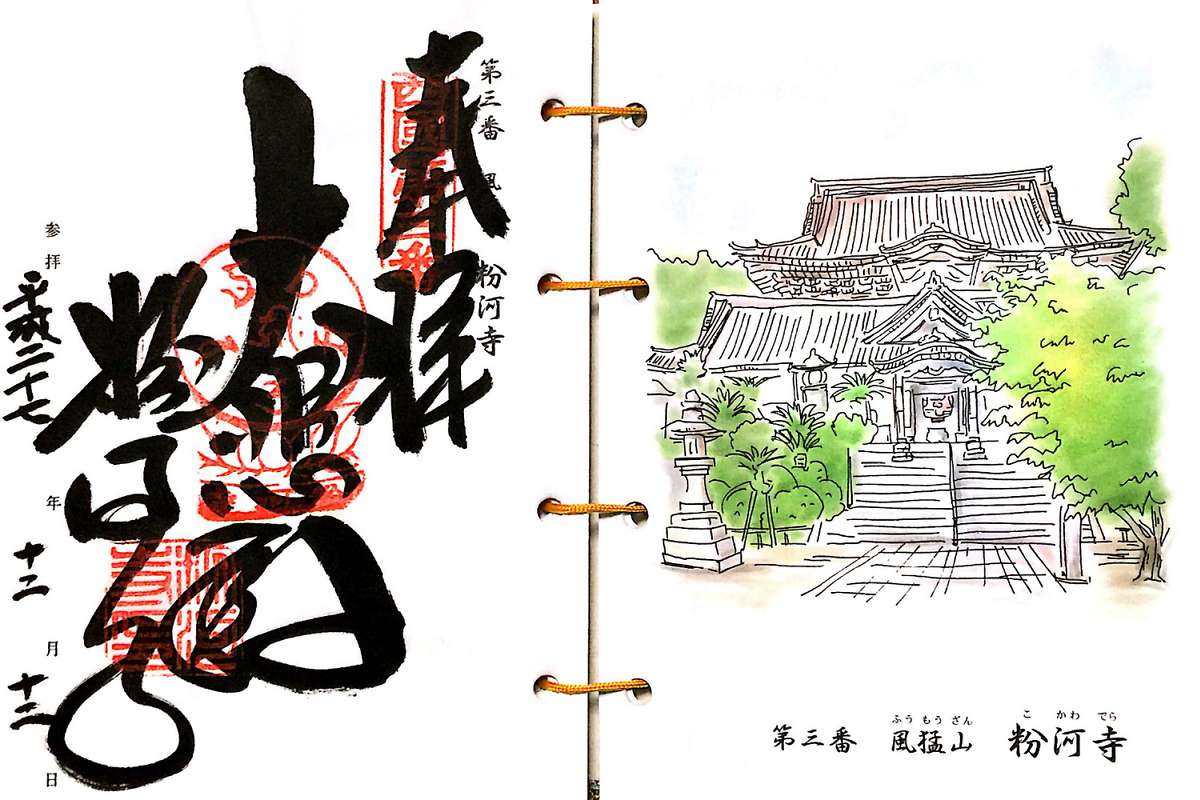 第三番 風 粉河寺
奉拝
大悲殿
粉河寺
参拝 平成二十七年十二月十三日
ふうもうざん こかわでら
第三番 風猛山 粉河寺